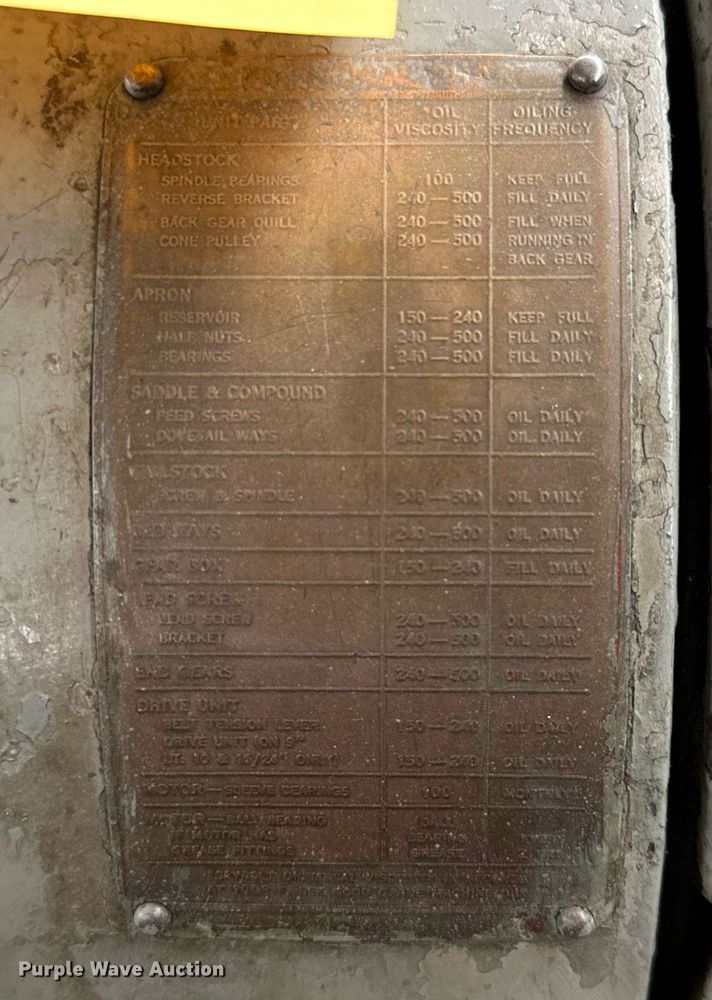 UNIT PART OIL VISCOSITY OILING FREQUENCY
HEADSTOCK
SPINDLE BEARINGS 100 KEEP FULL
REVERSE BRACKET 240—500 FILL DAILY
BACK GEAR QUILL 240—500 FILL WHEN
CONE PULLEY 240—500 RUNNING IN
BACK GEAR
APRON
RESERVOIR 150—240 KEEP FULL
HALF NUTS 240—500 FILL DAILY
BEARINGS 240—500 FILL DAILY
SADDLE & COMPOUND
FEED SCREWS 240—500 OIL DAILY
DOVETAIL WAYS 240—500 OIL DAILY
TAILSTOCK
SCREW & SPINDLE 240—500 OIL DAILY
BED WAYS 240—500 OIL DAILY
GEAR BOX 150—240 FILL DAILY
LEAD SCREW
LEAD SCREW 240—500 OIL DAILY
BRACKET 240—500 OIL DAILY
END GEARS 240—500 OIL DAILY
DRIVE UNIT
BELT TENSION LEVER 150—240 OIL DAILY
DRIVE UNIT (ON 9"
LT. 10 & 16/24" ONLY) 150—240 OIL DAILY
MOTOR—SLEEVE BEARINGS 100 MONTHLY
MOTOR—BALL BEARING BALL
IF MOTOR HAS BEARING
GREASE FITTINGS GREASE
Purple Wave Auction